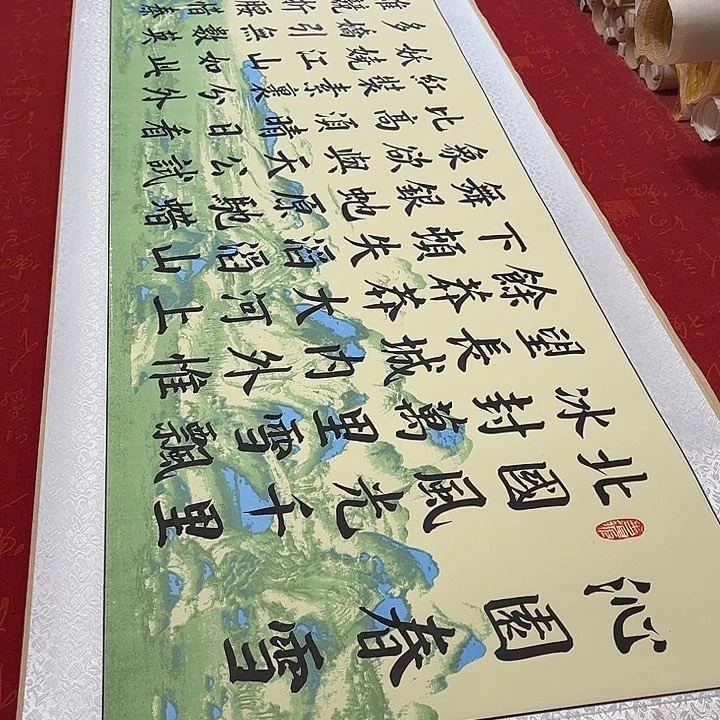 沁園春雪
北國風光千里
冰封萬里雪飄
望長城内外惟
餘莽莽大河上
下頓失滔滔山
舞銀蛇原馳蠟
象欲與天公試
比高須晴日看
紅裝素裹分外
妖嬈江山如此
多嬌引無數英
折腰惜秦